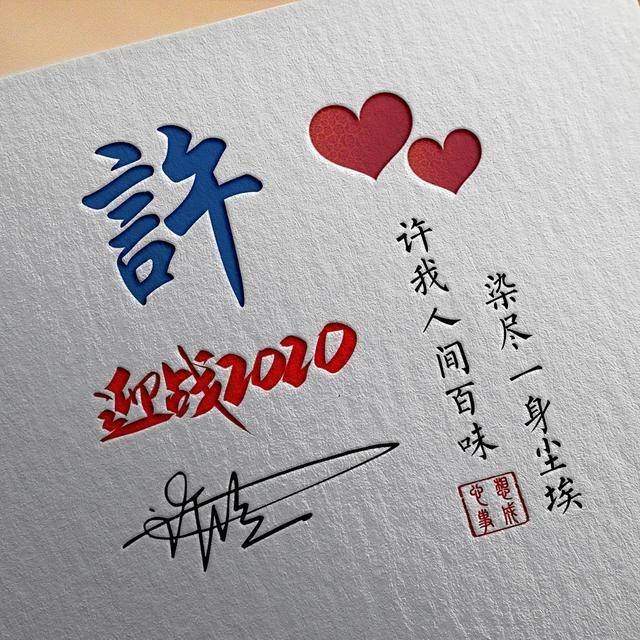 許
迎战2020
染尽一身尘埃
许我人间百味
心想事成